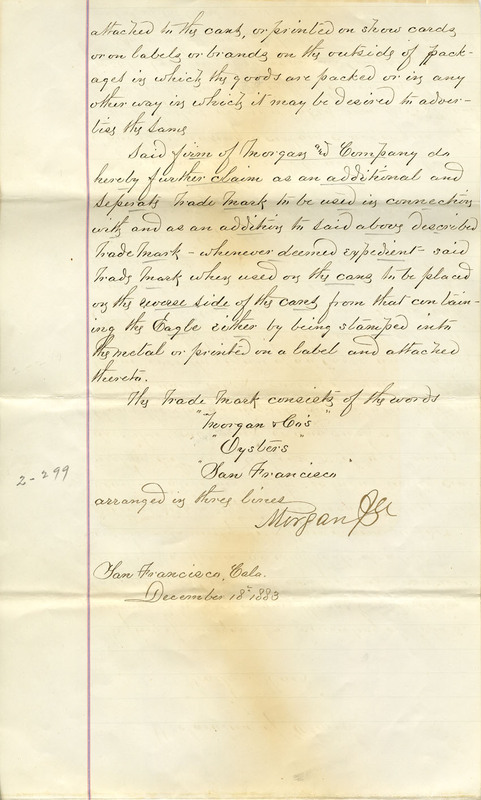 attached to the cans, or printed on show cards
or on labels or brands on the outside of pack-
ages in which the goods are packed or in any
other way in which it may be desired to adver-
tise the same
Said firm of Morgan and Company do
hereby further claim as an additional and
seperate Trade Mark to be used in connection
with and as an addition to said above described
Trade Mark - whenever deemed expedient - said
Trade Mark when used on the cans to be placed
on the reverse side of the cans from that contain-
ing the Eagle either by being stamped into
the metal or printed on a label and attached
thereto.
This Trade Mark consists of the words
"Morgan & Co's"
"Oysters"
"San Francisco"
2-299
arranged in three lines
Morgan & Co
San Francisco, Cala.
December 18th 1883